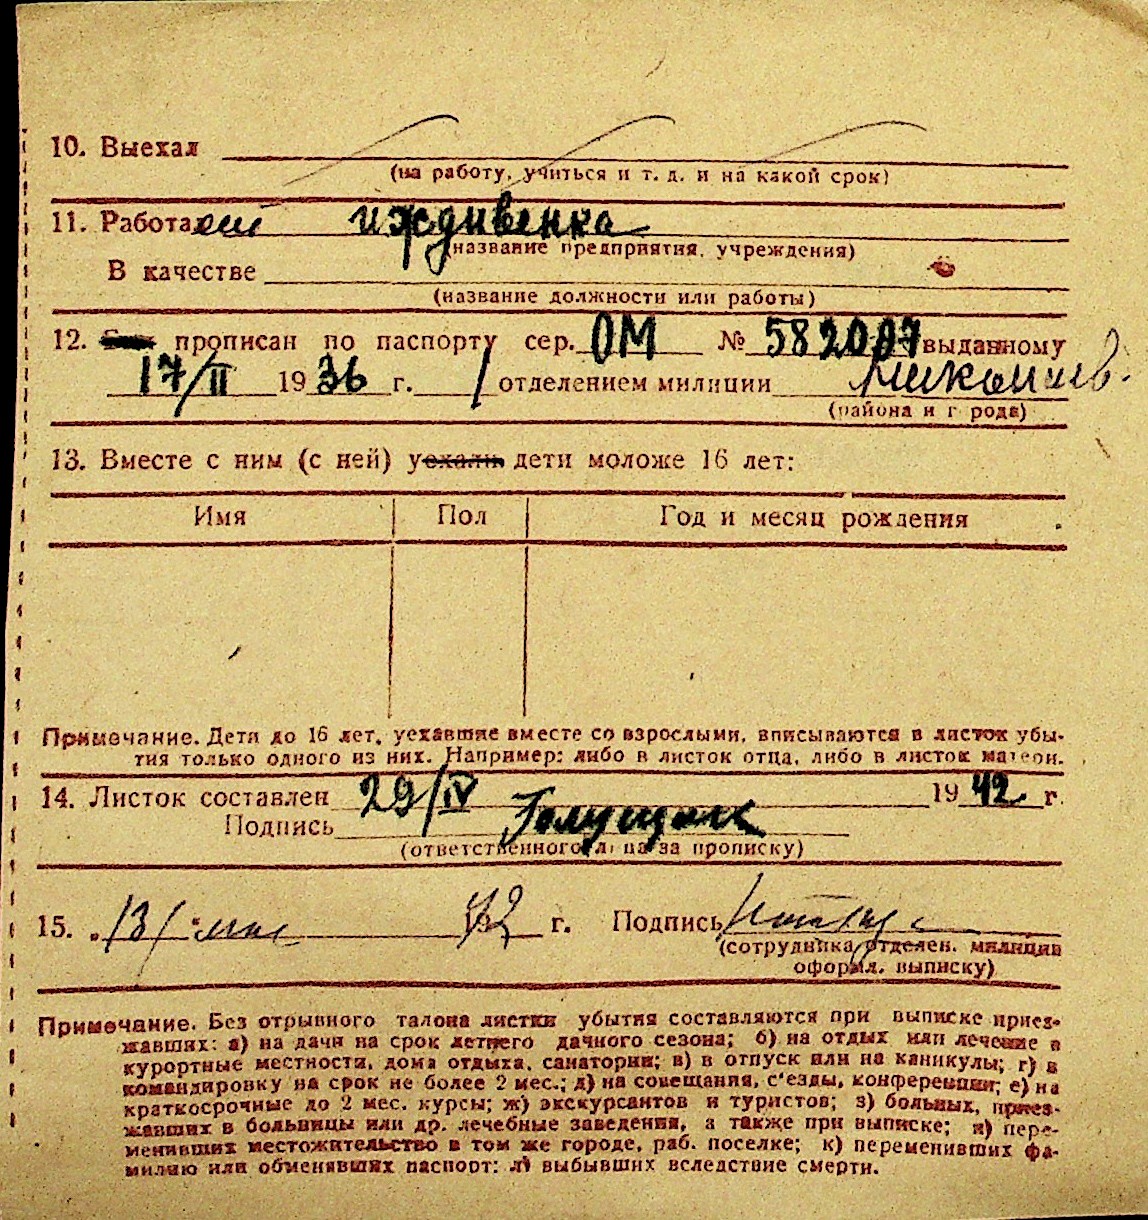 10. Выехал
(на работу, учиться и т. д. и на какой срок)
11. Работает иждивенка
(название предприятия, учреждения)
В качестве
(название должности или работы)
12. Был прописан по паспорту сер. ОМ № 582007 выданному
17/II 1936 г. 1 отделением милиции
(района и г рода)
13. Вместе с ним (с ней) уехали дети моложе 16 лет:
Имя Пол Год и месяц рождения
Примечание. Дети до 16 лет, уехавшие вместе со взрослыми, вписываются в листок убы-
тия только одного из них. Например: либо в листок отца, либо в листок матери.
14. Листок составлен 29/IV 1942 г.
Подпись
(ответственного лица за прописку)
15. „13" мая 42 г. Подпись
(сотрудника отделен. милиции
оформл. выписку)
Примечание. Без отрывного талона листки убытия составляются при выписке приез-
жавших: а) на дачи на срок летнего дачного сезона; б) на отдых или лечение в
курортные местности, дома отдыха, санатории; в) в отпуск или на каникулы; г) в
командировку на срок не более 2 мес.; д) на совещания, с'езды, конференции; е) на
краткосрочные до 2 мес. курсы; ж) экскурсантов и туристов; з) больных, приез-
жавших в больницы или др. лечебные заведения, а также при выписке; и) пере-
менивших местожительство в том же городе, раб. поселке; к) переменивших фа-
милию или обменявших паспорт: л) выбывших вследствие смерти.